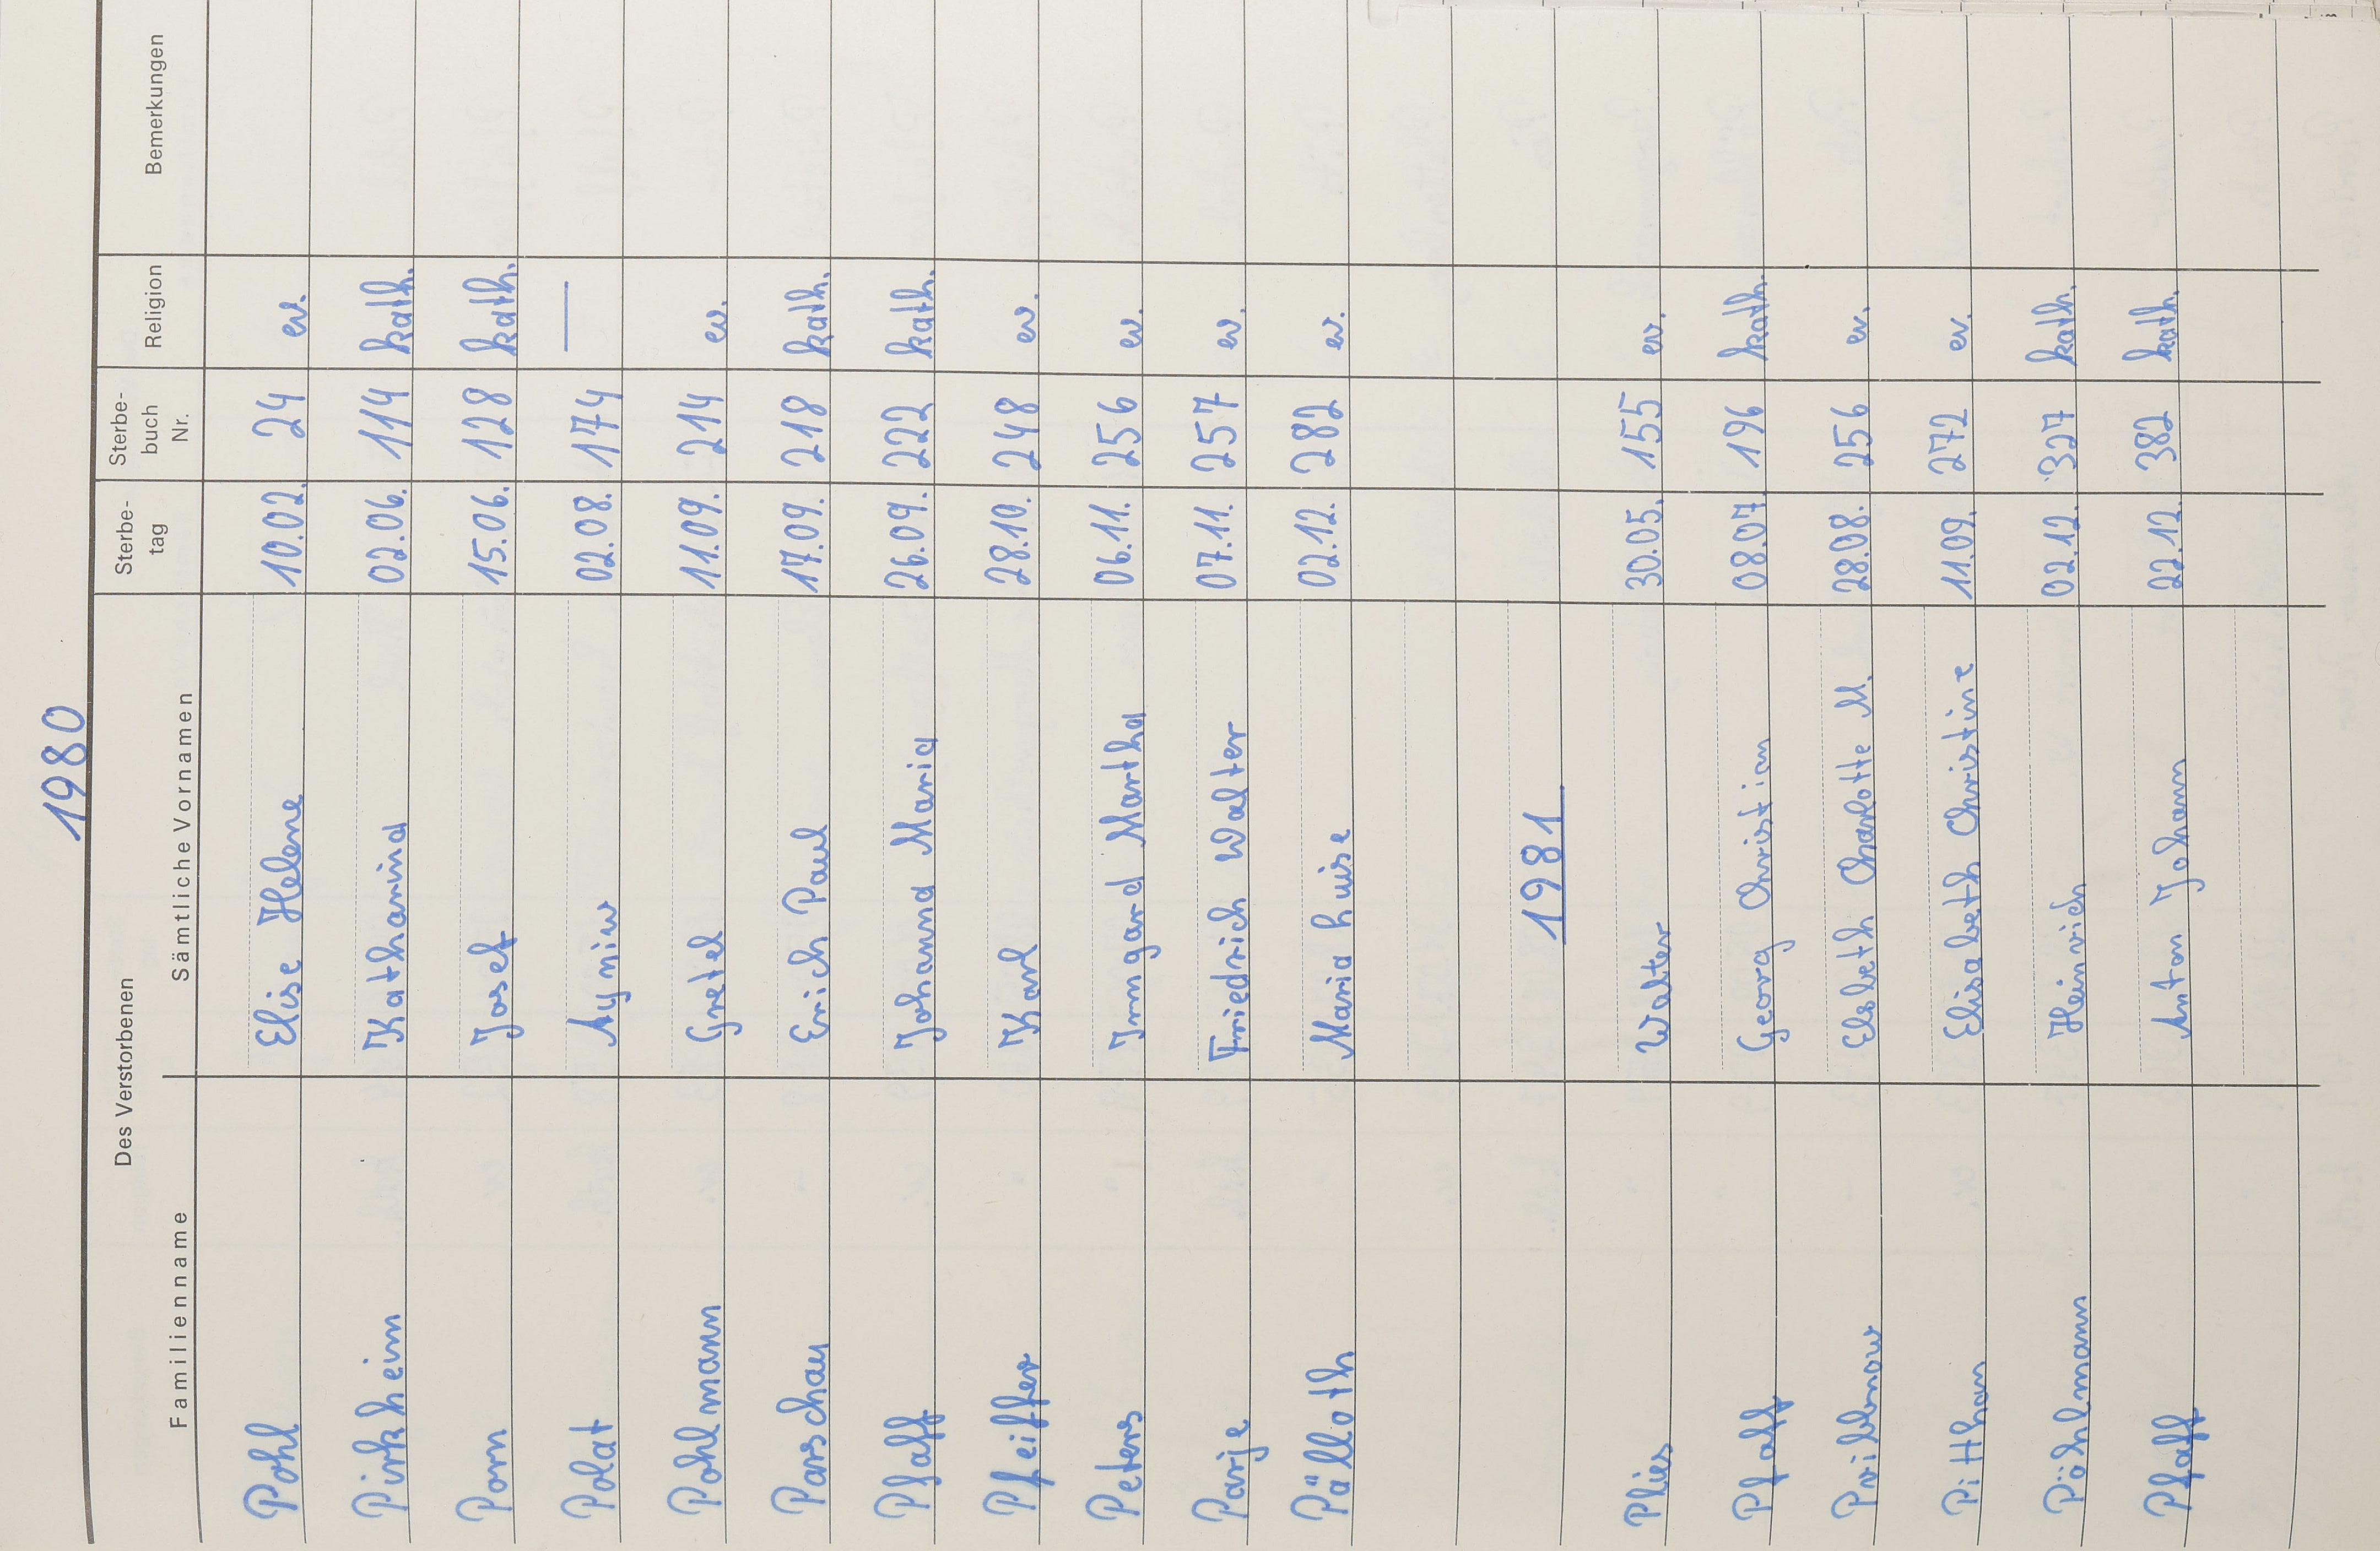 1980
Des Verstorbenen Sterbe- Sterbe- Religion Bemerkungen
Familienname Sämtliche Vornamen tag buch Nr.
Pohl Elise Helene 10.02. 24 ev.
Pirkheim Katharina 02.06. 114 kath.
Porn Josef 15.06. 128 kath.
Polat 02.08. 174 —
Pohlmann Gretel 11.09. 214 ev.
Parschau Erich Paul 17.09. 218 kath.
Pfaff Johanna Maria 26.09. 222 kath.
Pfeiffer Karl 28.10. 248 ev.
Peters Irmgard Martha 06.11. 256 ev.
Parije Friedrich Walter 07.11. 257 ev.
Pälloth Maria Luise 02.12. 282 ev.
1981
Plies Walter 30.05. 155 ev.
Pfaff Georg Christian 08.07. 196 kath.
Elsbeth Charlotte M. 28.08. 256 ev.
Pitthan Elisabeth Christine 11.09. 272 ev.
Pöhlmann Heinrich 02.12. 327 kath.
Pfaff Anton Johann 22.12. 382 kath.